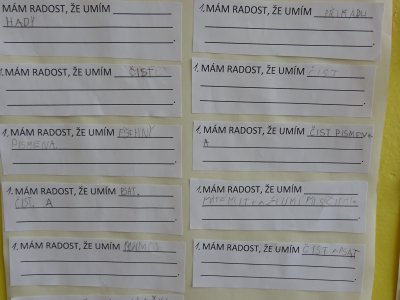 1. MÁM RADOST, ŽE UMÍM
HADY
1. MÁM RADOST, ŽE UMÍM
1. MÁM RADOST, ŽE UMÍM ČÍST
1. MÁM RADOST, ŽE UMÍM ČÍST
1. MÁM RADOST, ŽE UMÍM
PISMENA
1. MÁM RADOST, ŽE UMÍM ČIST PISMENA
A
1. MÁM RADOST, ŽE UMÍM PSÁT,
ČÍST, A
1. MÁM RADOST, ŽE UMÍM
1. MÁM RADOST, ŽE UMÍM
1. MÁM RADOST, ŽE UMÍM ČÍST PSÁT